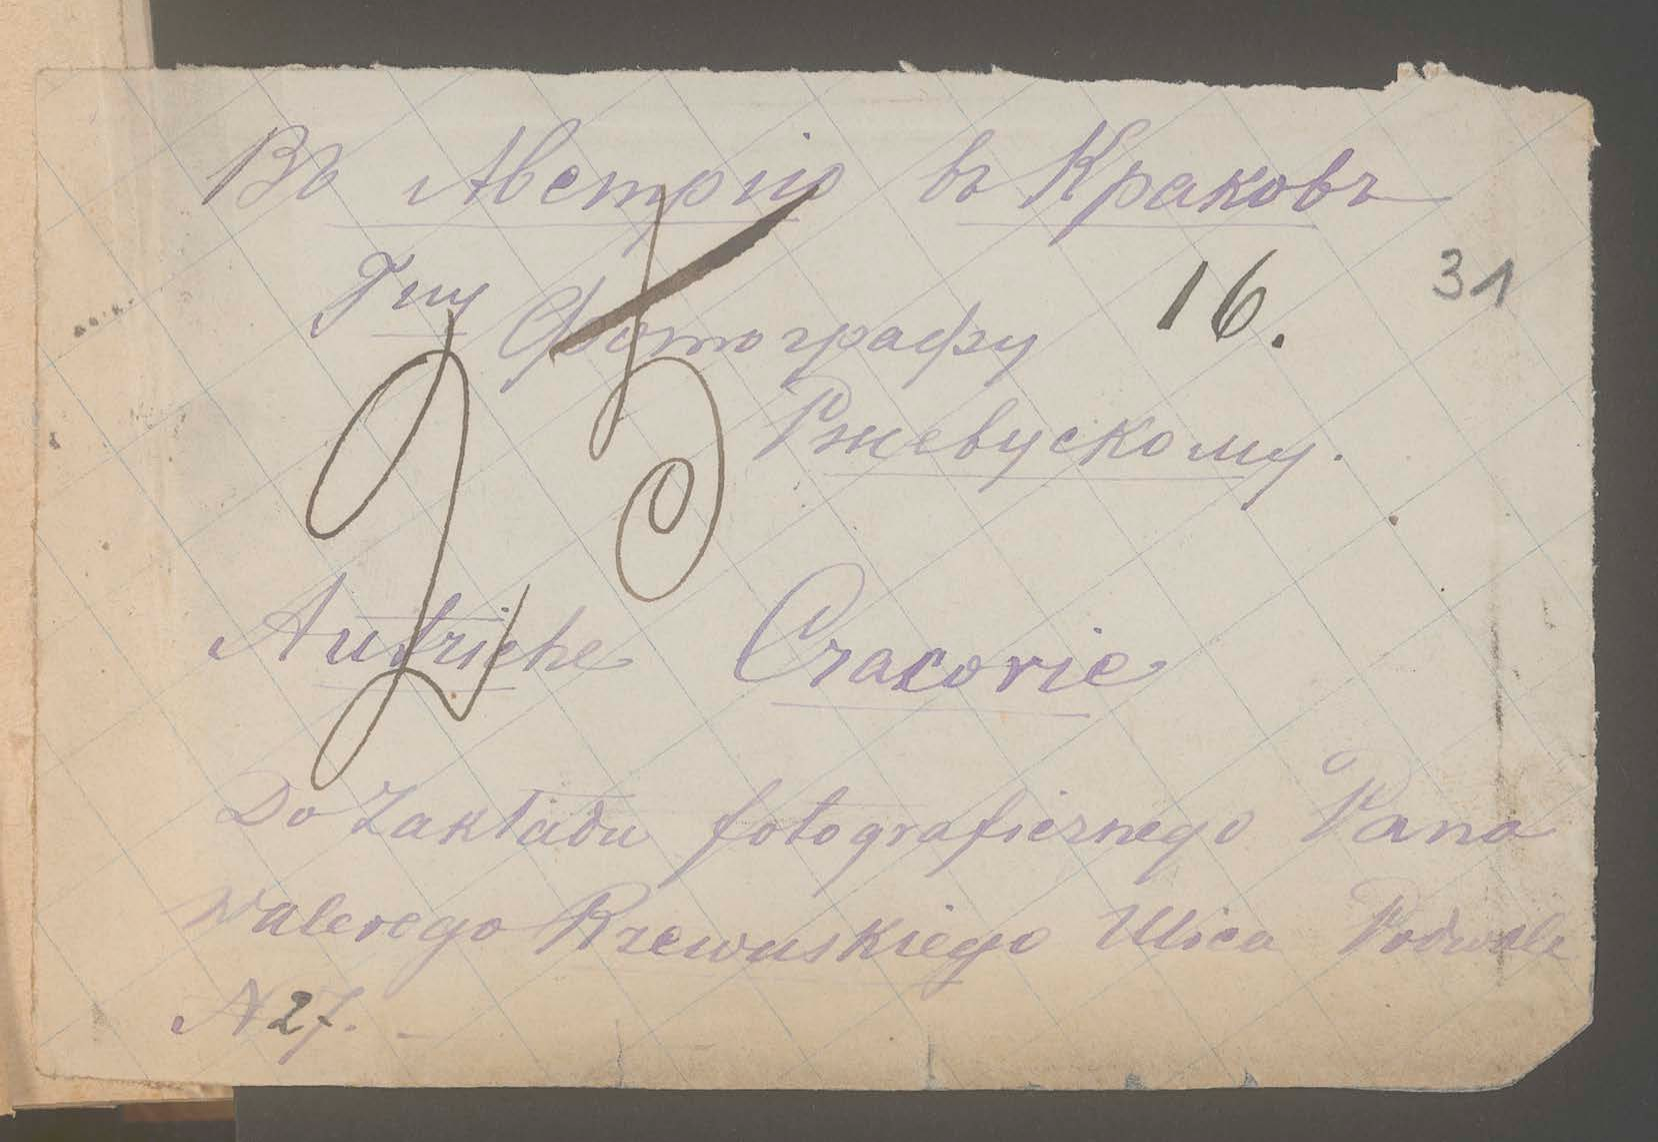 Въ Австрію въ Краковъ
Гну Фотографу 16. 31
Ржевускому.
Autriche Cracovie
Do Zakładu fotograficznego Pana
Walerego Rzewuskiego Ulica Podwale
N 27.